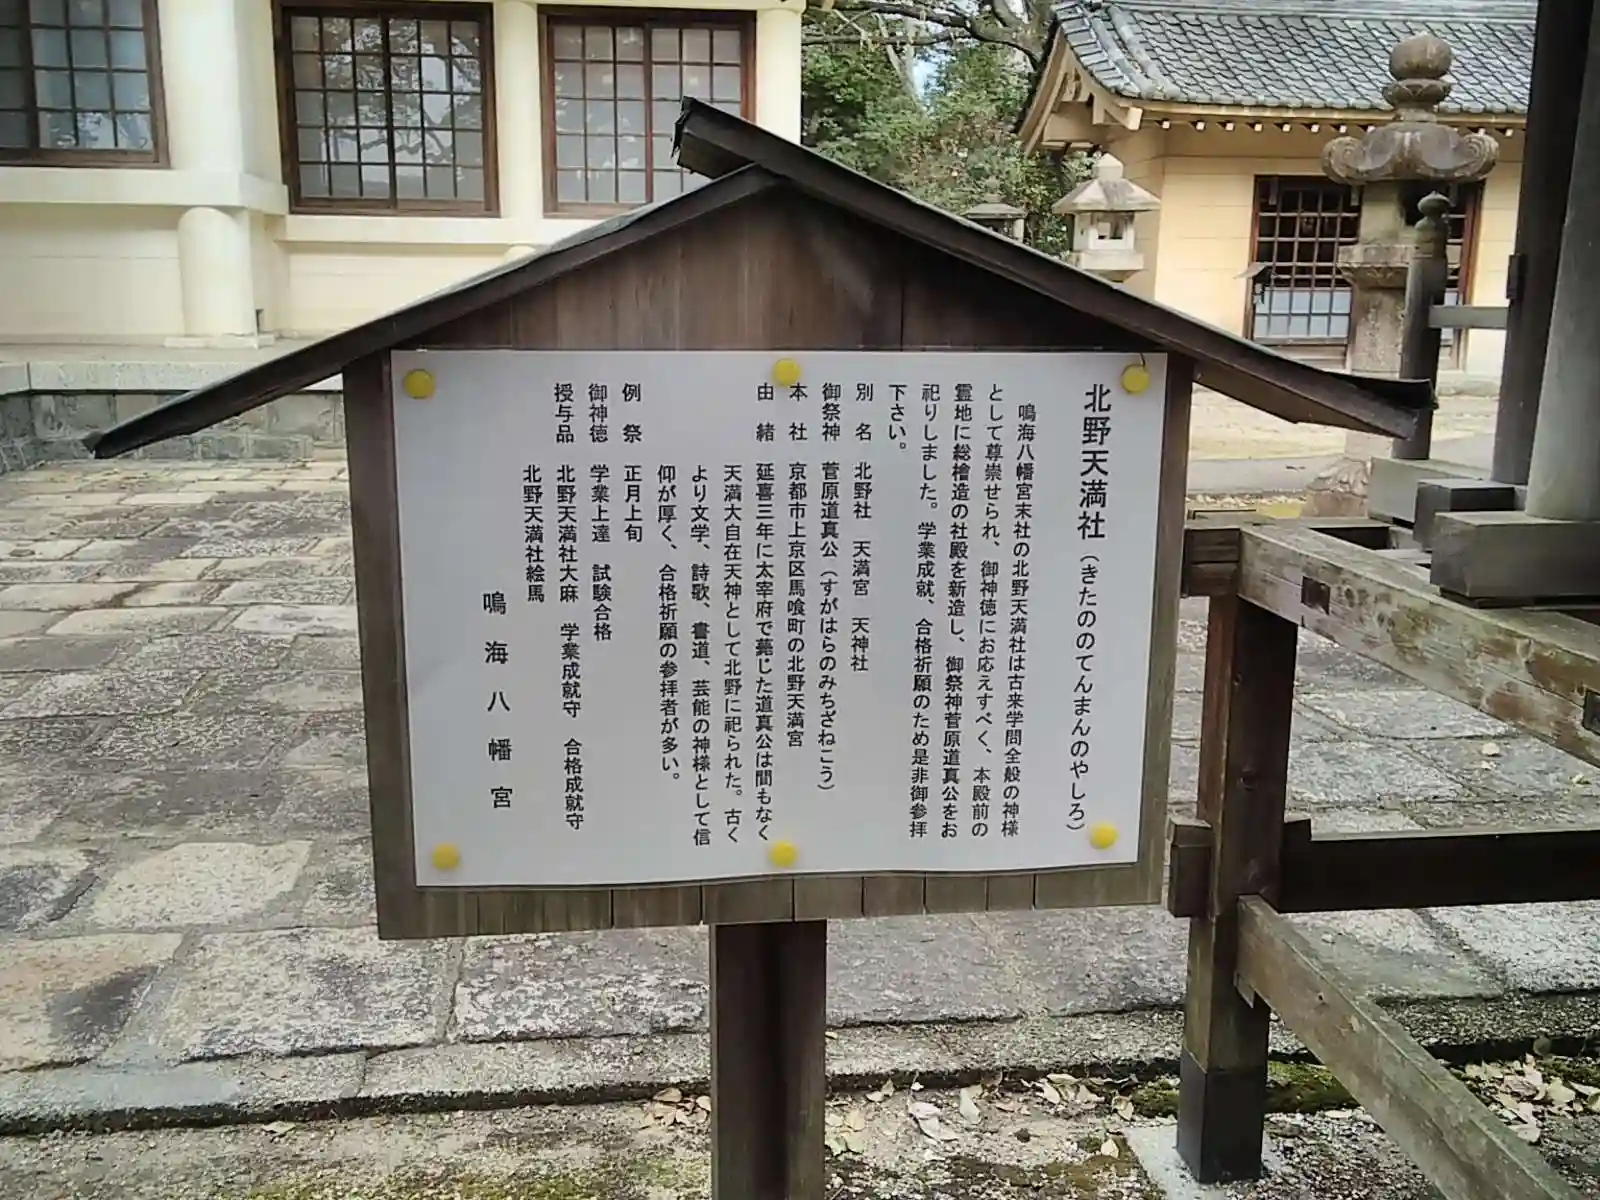 北野天満社（きたののてんまんのやしろ）
鳴海八幡宮末社の北野天満社は古来学問全般の神様
として尊崇せられ、御神徳にお応えすべく、本殿前の
霊地に総檜造の社殿を新造し、御祭神菅原道真公をお
祀りしました。学業成就、合格祈願のため是非御参拝
下さい。
別　名　北野社　天満宮　天神社
御祭神　菅原道真公（すがはらのみちざねこう）
本　社　京都市上京区馬喰町の北野天満宮
由　緒　延喜三年に太宰府で薨じた道真公は間もなく
天満大自在天神として北野に祀られた。古く
より文学、詩歌、書道、芸能の神様として信
仰が厚く、合格祈願の参拝者が多い。
例　祭　正月上旬
御神徳　学業上達　試験合格
授与品　北野天満社大麻　学業成就守　合格成就守
北野天満社絵馬
鳴海八幡宮